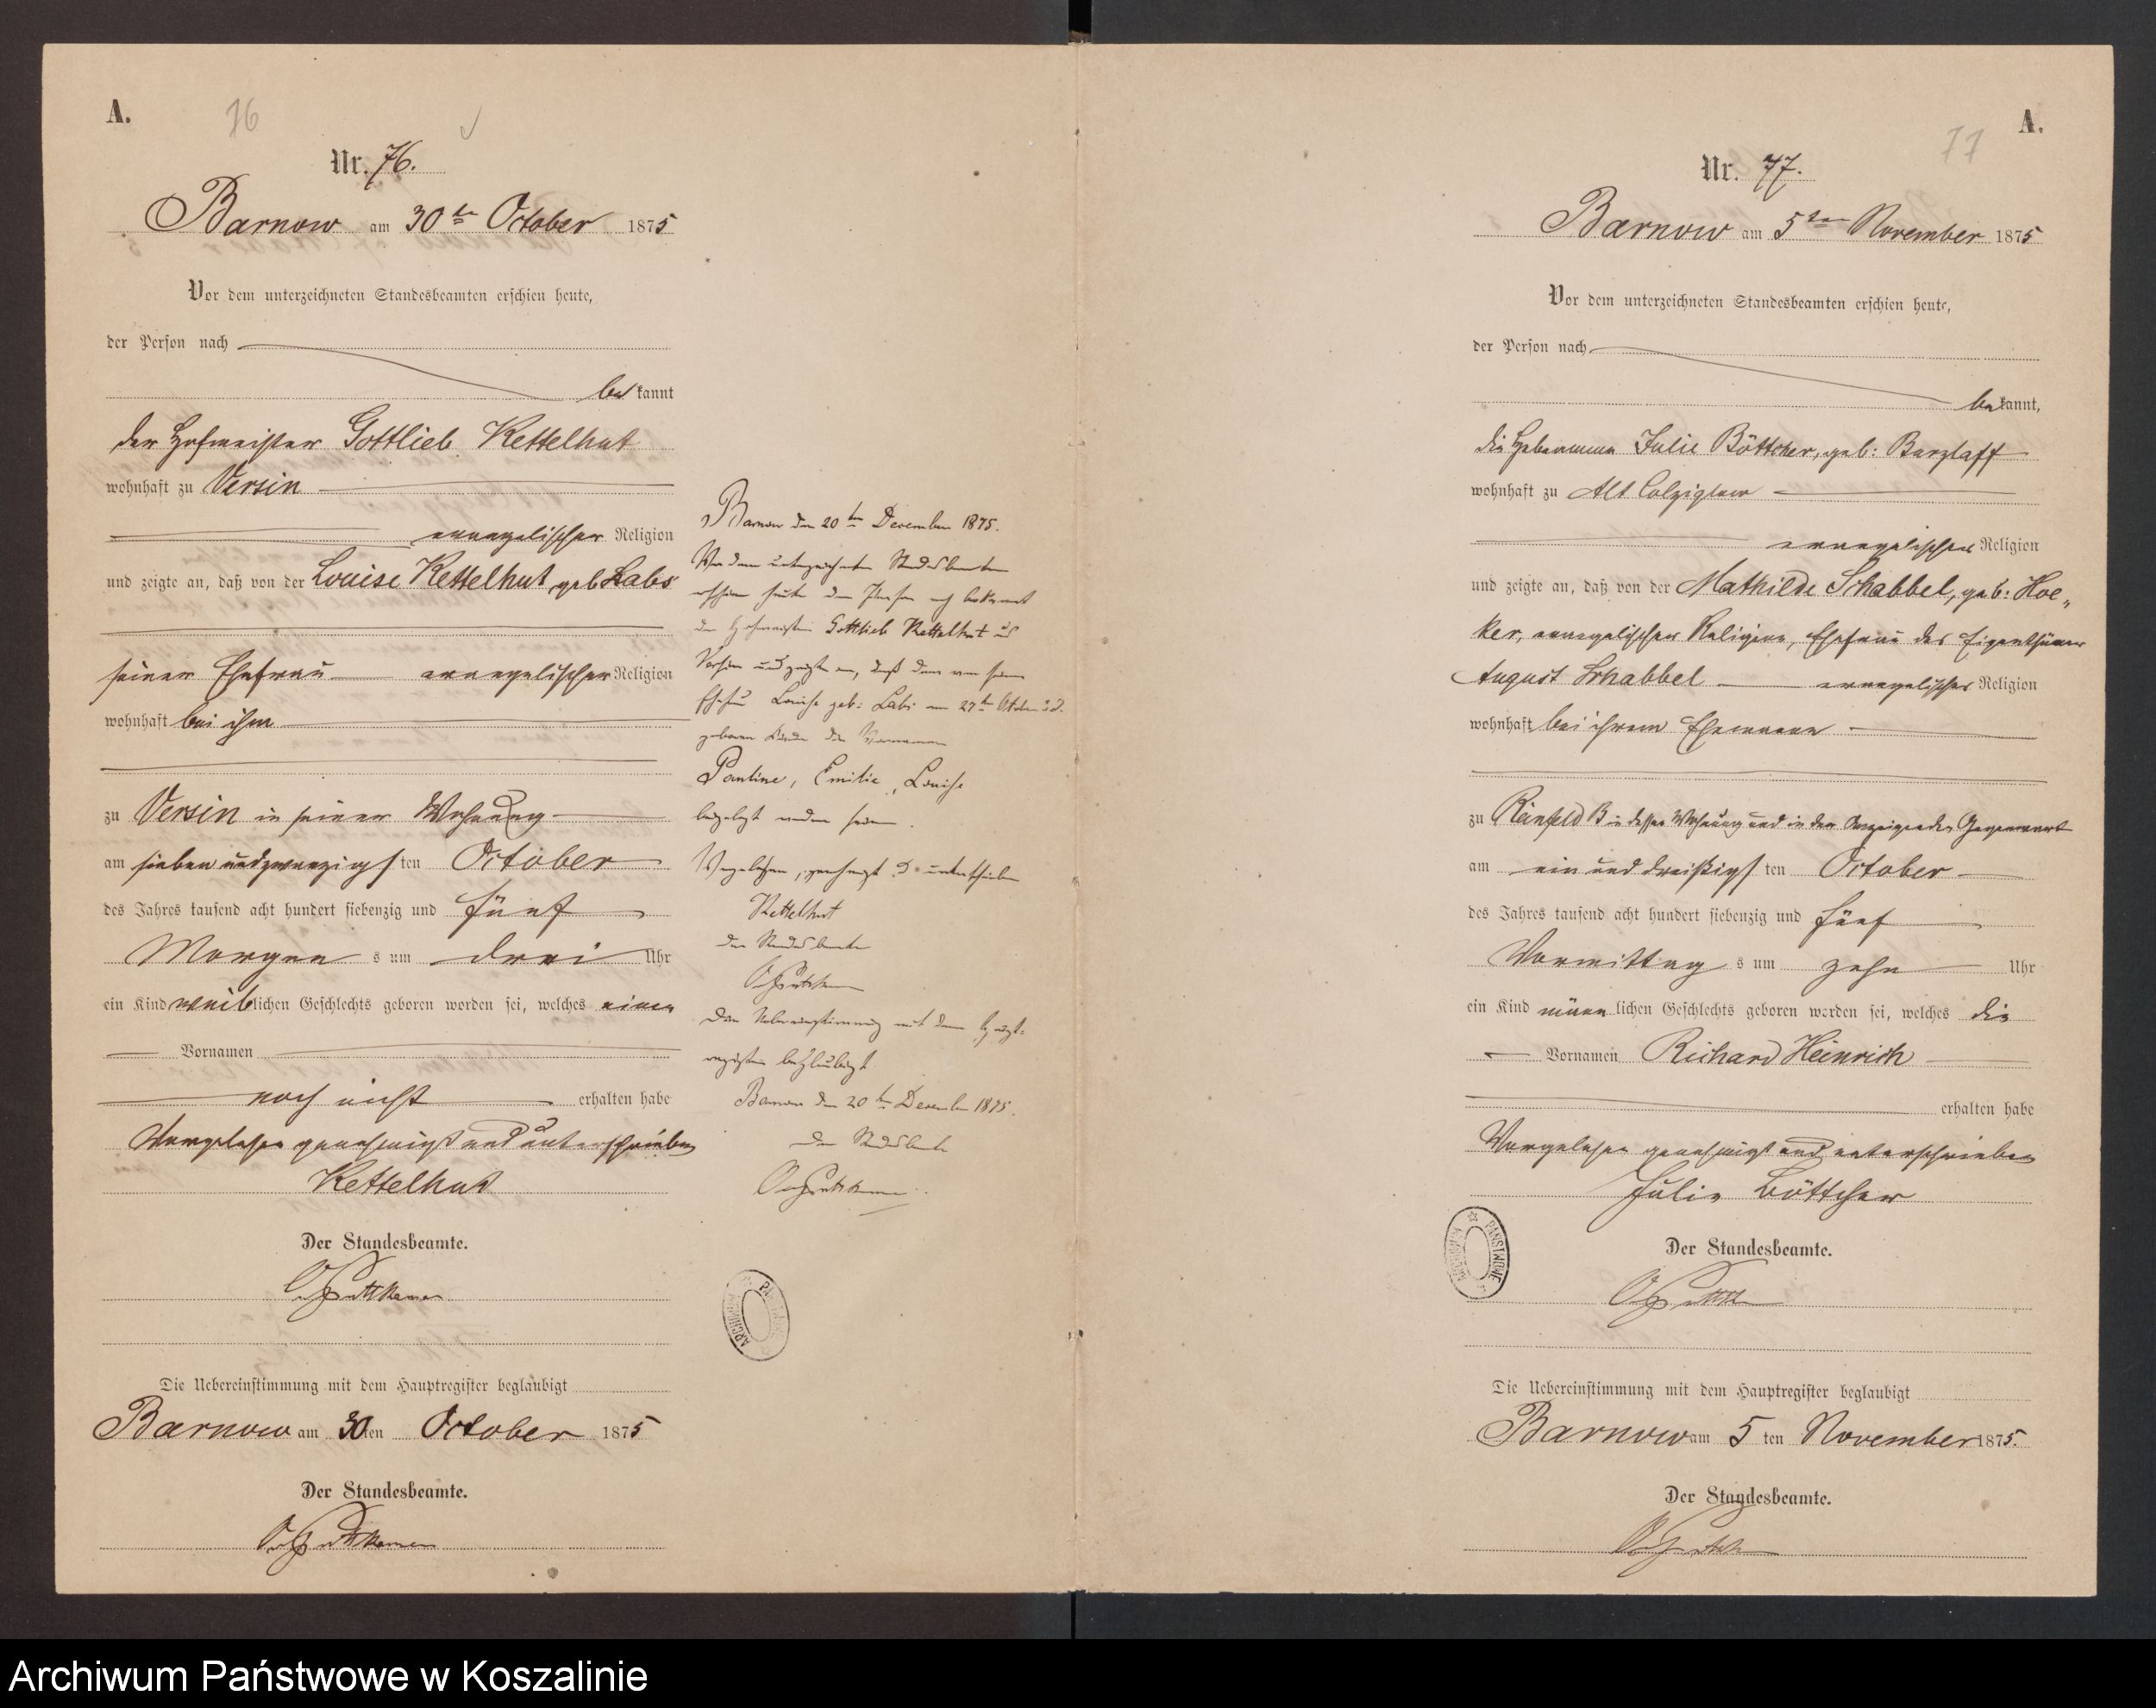 A.
76
Nr. 76.
Barnow am 30ten October 1875
Vor dem unterzeichneten Standesbeamten erschien heute,
der Person nach
bekannt
der Hofmeister Gottlieb Kettelhut
wohnhaft zu Versin
evangelischer Religion
und zeigte an, daß von der Louise Kettelhut geb Labs
seiner Ehefrau evangelischer Religion
wohnhaft bei ihm
zu Versin in seiner Wohnung
am sieben und zwanzigsten October
des Jahres tausend acht hundert siebenzig und fünf
Morgens um drei Uhr
ein Kind weiblichen Geschlechts geboren worden sei, welches einen
Vornamen
noch nicht erhalten habe
Vorgelesen genehmigt und unterschrieben
Kettelhut
Der Standesbeamte.
v Puttkamer
Die Uebereinstimmung mit dem Hauptregister beglaubigt
Barnow am 30ten October 1875
Der Standesbeamte.
v Puttkamer
Barnow den 20ten December 1875.
Vor dem unterzeichneten Standesbeamten
erschien heute der Person nach bekannt
der Hofmeister Gottlieb Kettelhut aus
Versin und zeigte an, daß dem von seiner
Ehefrau Louise geb: Labs am 27ten October
geborenen Kinde die Vornamen
Pauline, Emilie, Louise
beigelegt worden seien.
Vorgelesen, genehmigt u unterschrieben
Kettelhut
Der Standesbeamte
v Puttkamer
Die Uebereinstimmung mit dem Haupt-
register beglaubigt
Barnow den 20ten December 1875.
Der Standesbeamte
v Puttkamer
ARCHIWUM PAŃSTWOWE
A.
77
Nr. 77.
Barnow am 5ten November 1875
Vor dem unterzeichneten Standesbeamten erschien heute,
der Person nach
bekannt,
die Hebamme Julie Böttcher, geb: Barzlaff
wohnhaft zu Alt Colziglow
evangelischer Religion
und zeigte an, daß von der Mathilde Schabbel, geb: Hoe„
ker, evangelischer Religion, Ehefrau des Eigenthümer
August Schabbel evangelischer Religion
wohnhaft bei ihrem Ehemann
zu Reinfeld B in dessen Wohnung und in der Anzeigenden Gegenwart
am ein und dreißigsten October
des Jahres tausend acht hundert siebenzig und fünf
Vormittags um zehn Uhr
ein Kind männlichen Geschlechts geboren worden sei, welches die
Vornamen Richard Heinrich
erhalten habe
Vorgelesen genehmigt und unterschrieben
Julie Böttcher
ARCHIWUM PAŃSTWOWE
Der Standesbeamte.
Die Uebereinstimmung mit dem Hauptregister beglaubigt
Barnow am 5ten November 1875.
Der Standesbeamte.
Archiwum Państwowe w Koszalinie